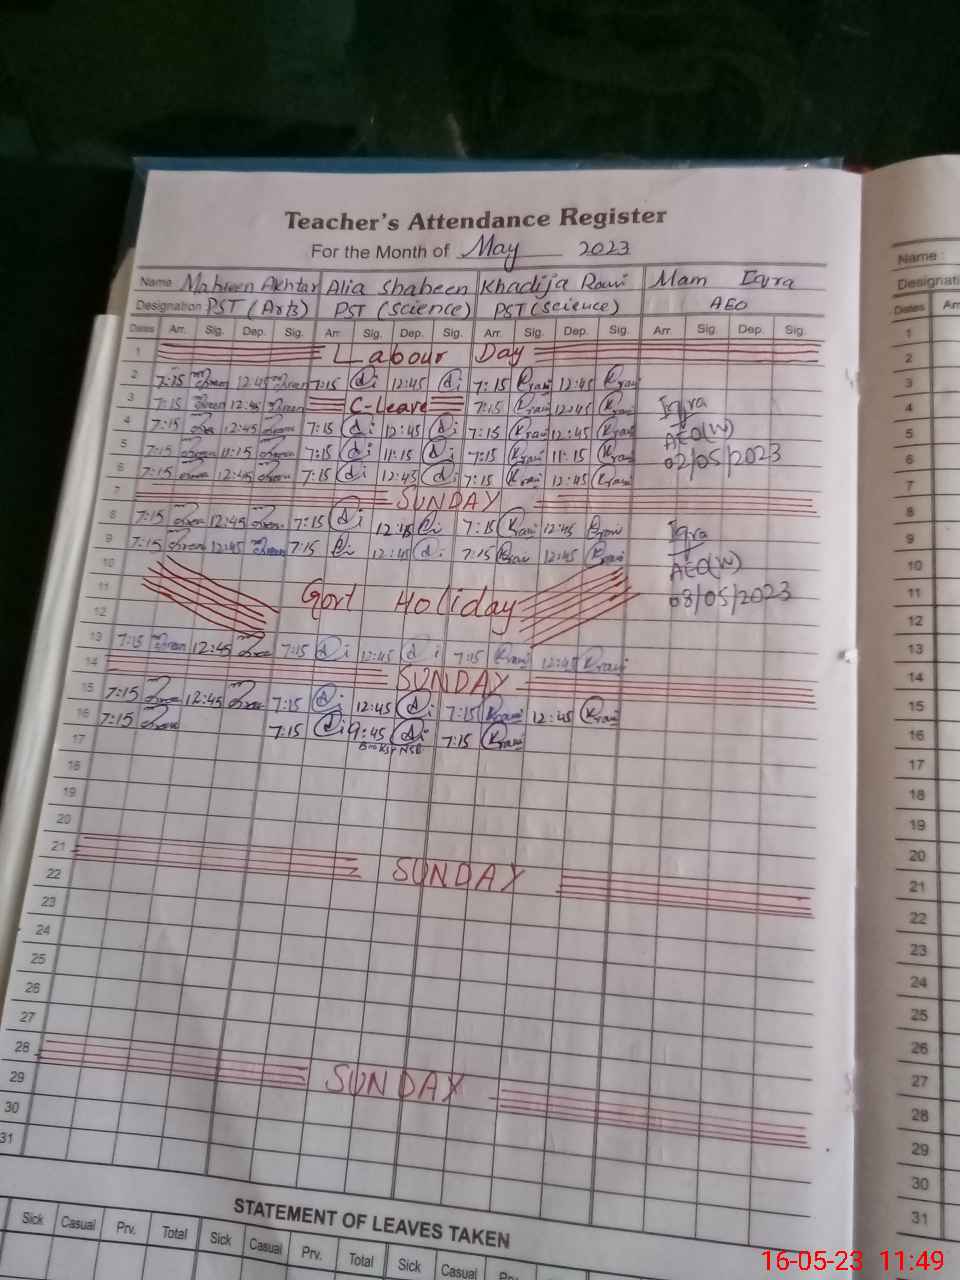 Teacher's Attendance Register
For the Month of May 2023
Name Mahreen Akhtar Alia Shaheen Khadija Rawi Mam Iqra
Designation PST (Arts) PST (Science) PST (Science) AEO
Dates Arr. Sig. Dep. Sig. Arr. Sig. Dep. Sig. Arr. Sig. Dep. Sig. Arr. Sig. Dep. Sig.
1 Labour Day
2 7:15 12:45 7:15 12:45 7:15 12:45
3 7:15 12:45 C-Leave 7:15 12:45 Iqra
4 7:15 12:45 7:15 12:45 7:15 12:45 AEO(W)
5 7:15 11:15 7:15 11:15 7:15 11:15 02/05/2023
6 7:15 12:45 7:15 12:45 7:15 12:45
7 SUNDAY
8 7:15 12:45 7:15 12:45 7:15 12:45 Iqra
9 7:15 12:45 7:15 12:45 7:15 12:45 AEO(W)
10
11 Govt Holiday 08/05/2023
12
13 7:15 12:45 7:15 12:45 7:15 12:45
14 SUNDAY
15 7:15 12:45 7:15 12:45 7:15 12:45
16 7:15 7:15 9:45 7:15
17
18
19
20
21 SUNDAY
22
23
24
25
26
27
28 SUNDAY
29
30
31
STATEMENT OF LEAVES TAKEN
Sick Casual Prv. Total Sick Casual Prv. Total Sick Casual Prv.
Name :
Dates
1
2
3
4
5
6
7
8
9
10
11
12
13
14
15
16
17
18
19
20
21
22
23
24
25
26
27
28
29
30
31
16-05-23 11:49